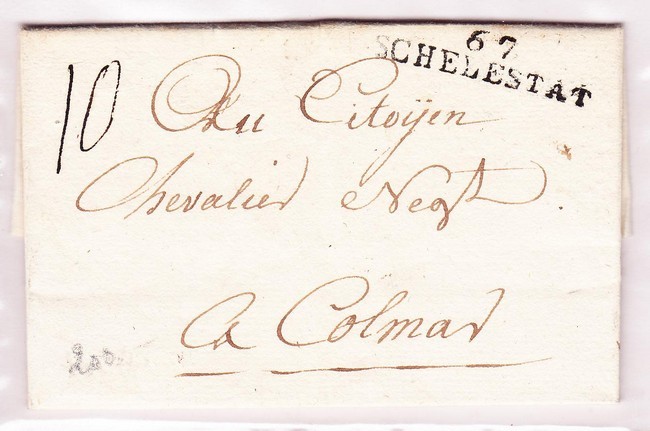 67
SCHELESTAT
10
Au Citoÿen
Chevalier Negt
a Colmar
200